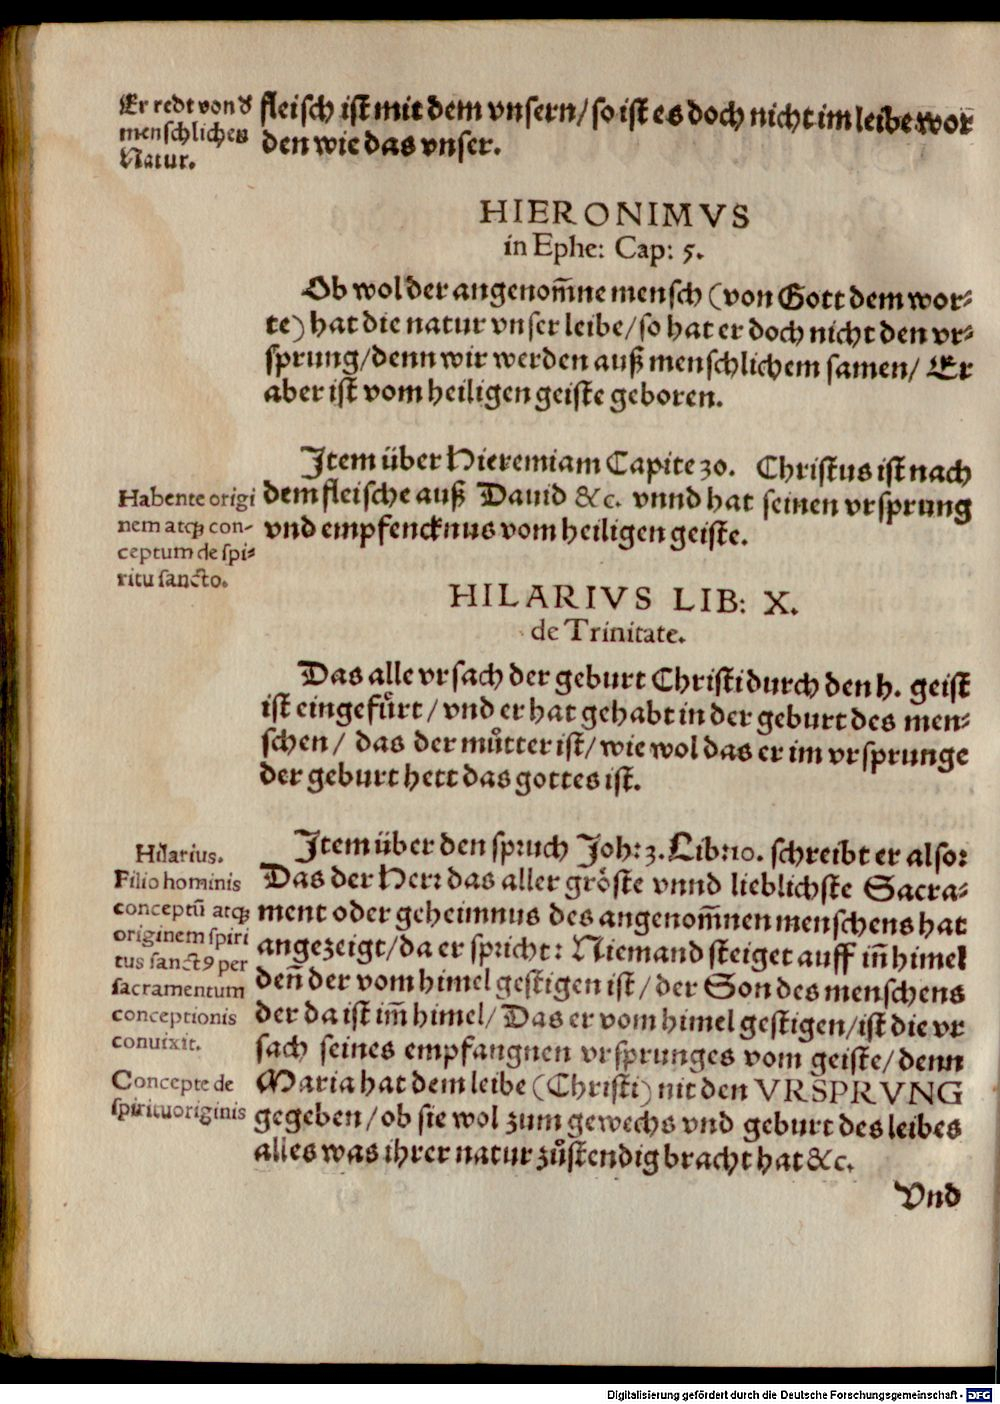 Er redt von d'
menschlichen
Natur.
fleisch ist mit dem vnsern/ so ist es doch nicht im leibe wor
den wie das vnser.
HIERONIMVS
in Ephe: Cap: 5.
Ob wol der angenom̄ne mensch (von Gott dem wor⸗
te) hat die natur vnser leibe/ so hat er doch nicht den vr⸗
sprung/ denn wir werden auß menschlichem samen/ Er
aber ist vom heiligen geiste geboren.
Item über Hieremiam Capite 30. Christus ist nach
dem fleische auß Dauid &c. vnnd hat seinen vrsprung
vnd empfencknus vom heiligen geiste.
Habente origi
nem atqꝫ con-
ceptum de spi⸗
ritu sancto.
HILARIVS LIB: X.
de Trinitate.
Das alle vrsach der geburt Christi durch den h. geist
ist eingefuͤrt/ vnd er hat gehabt in der geburt des men⸗
schen/ das der muͦtter ist/ wie wol das er im vrsprunge
der geburt hett das gottes ist.
Hilarius.
Filio hominis
conceptū atqꝫ
originem spiri
tus sanctꝰ per
sacramentum
conceptionis
conuixit.
Concepte de
spiritu originis
Item über den spruch Joh: 3. Lib: 10. schreibt er also:
Das der Herr das aller gröste vnnd lieblichste Sacra⸗
ment oder geheimnus des angenom̄nen menschens hat
angezeigt/ da er spricht: Niemand steiget auff in̄ himel
den̄ der vom himel gestigen ist/ der Son des menschens
der da ist im̄ himel/ Das er vom himel gestigen/ ist die vr
sach seines empfangnen vrsprunges vom geiste/ denn
Maria hat dem leibe (Christi) nit den VRSPRVNG
gegeben/ ob sie wol zum gewechs vnd geburt des leibes
alles was ihrer natur zuͦstendig bracht hat &c.
Vnd
Digitalisierung gefördert durch die Deutsche Forschungsgemeinschaft - DFG